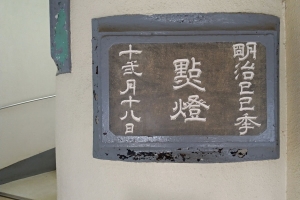 明治己巳季
點燈
十弍月十八日